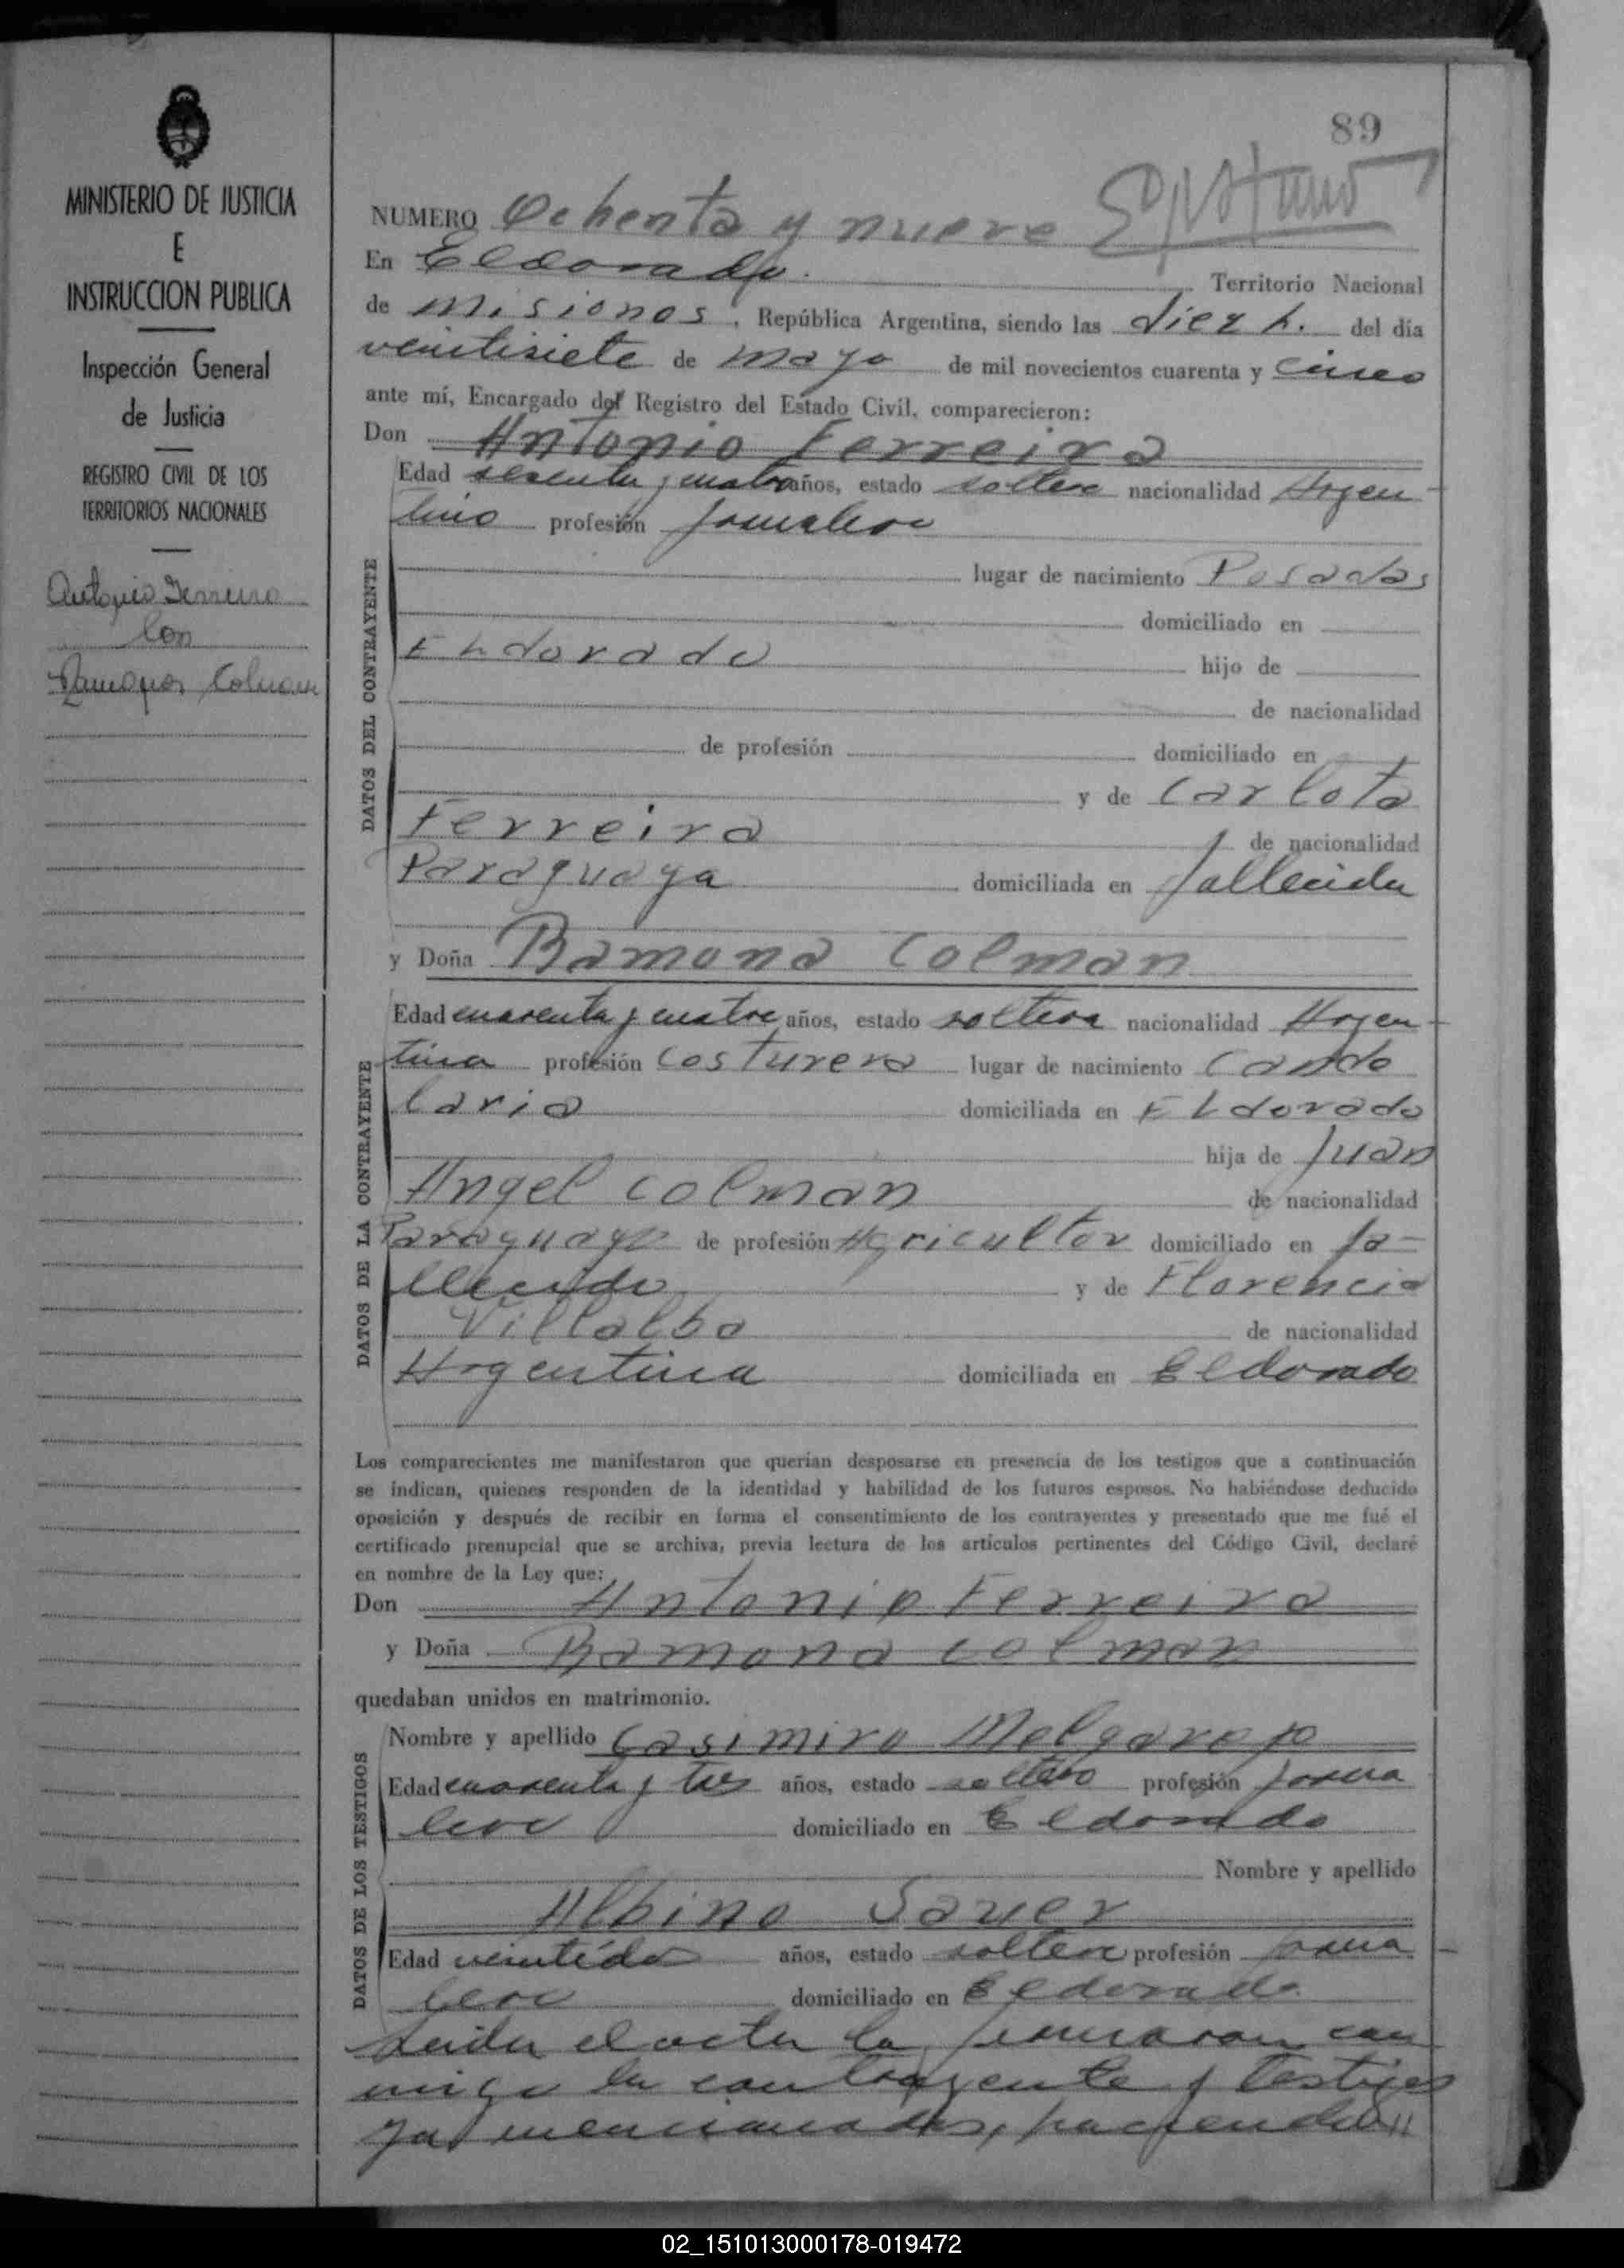 89
MINISTERIO DE JUSTICIA
E
INSTRUCCION PUBLICA
Inspección General
de Justicia
REGISTRO CIVIL DE LOS
TERRITORIOS NACIONALES
Antonio Ferreira
con
Ramona Colman
NUMERO Ochenta y nueve
En Eldorado. Territorio Nacional
de Misiones, República Argentina, siendo las diez h. del día
veintisiete de mayo de mil novecientos cuarenta y cinco
ante mí, Encargado del Registro del Estado Civil, comparecieron:
Don Antonio Ferreira
DATOS DEL CONTRAYENTE
Edad sesenta y cuatro años, estado soltero nacionalidad Argen-
tino profesión jornalero
lugar de nacimiento Posadas
domiciliado en
Eldorado hijo de
de nacionalidad
de profesión domiciliado en
y de Carlota
Ferreira de nacionalidad
Paraguaya domiciliada en fallecida
y Doña Ramona Colman
DATOS DE LA CONTRAYENTE
Edad cuarenta y cuatro años, estado soltera nacionalidad Argen-
tina profesión Costurera lugar de nacimiento Cande
laria domiciliada en Eldorado
hija de Juan
Angel Colman de nacionalidad
Paraguayo de profesión Agricultor domiciliado en fa-
llecido y de Florencia
Villalba de nacionalidad
Argentina domiciliada en Eldorado
Los comparecientes me manifestaron que querían desposarse en presencia de los testigos que a continuación
se indican, quienes responden de la identidad y habilidad de los futuros esposos. No habiéndose deducido
oposición y después de recibir en forma el consentimiento de los contrayentes y presentado que me fué el
certificado prenupcial que se archiva, previa lectura de los artículos pertinentes del Código Civil, declaré
en nombre de la Ley que:
Don Antonio Ferreira
y Doña Ramona Colman
quedaban unidos en matrimonio.
DATOS DE LOS TESTIGOS
Nombre y apellido Casimiro Melgarejo
Edad cuarenta y tres años, estado soltero profesión jorna
lero domiciliado en Eldorado
Nombre y apellido
Albino Sauer
Edad veintidos años, estado soltero profesión jorna-
lero domiciliado en Eldorado
Leida el acta la firmaron con
migo la contrayente y testigos
ya mencionados, haciendolo
02_151013000178-019472